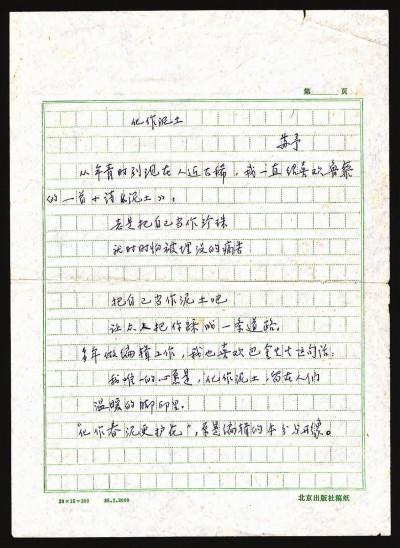 第 页
化作泥土
苏予
从年青时到现在人近古稀，我一直很喜欢鲁藜
的一首小诗《泥土》：
老是把自己当作珍珠
就时时怕被埋没的痛苦
把自己当作泥土吧
让众人把你踩成一条道路。
多年做编辑工作，我也喜欢巴金大大这句话：
我唯一的心愿是，化作泥土，留在人们
温暖的脚印里。
“化作春泥更护花”，原是编辑的本分
20×15=300
北京出版社稿纸